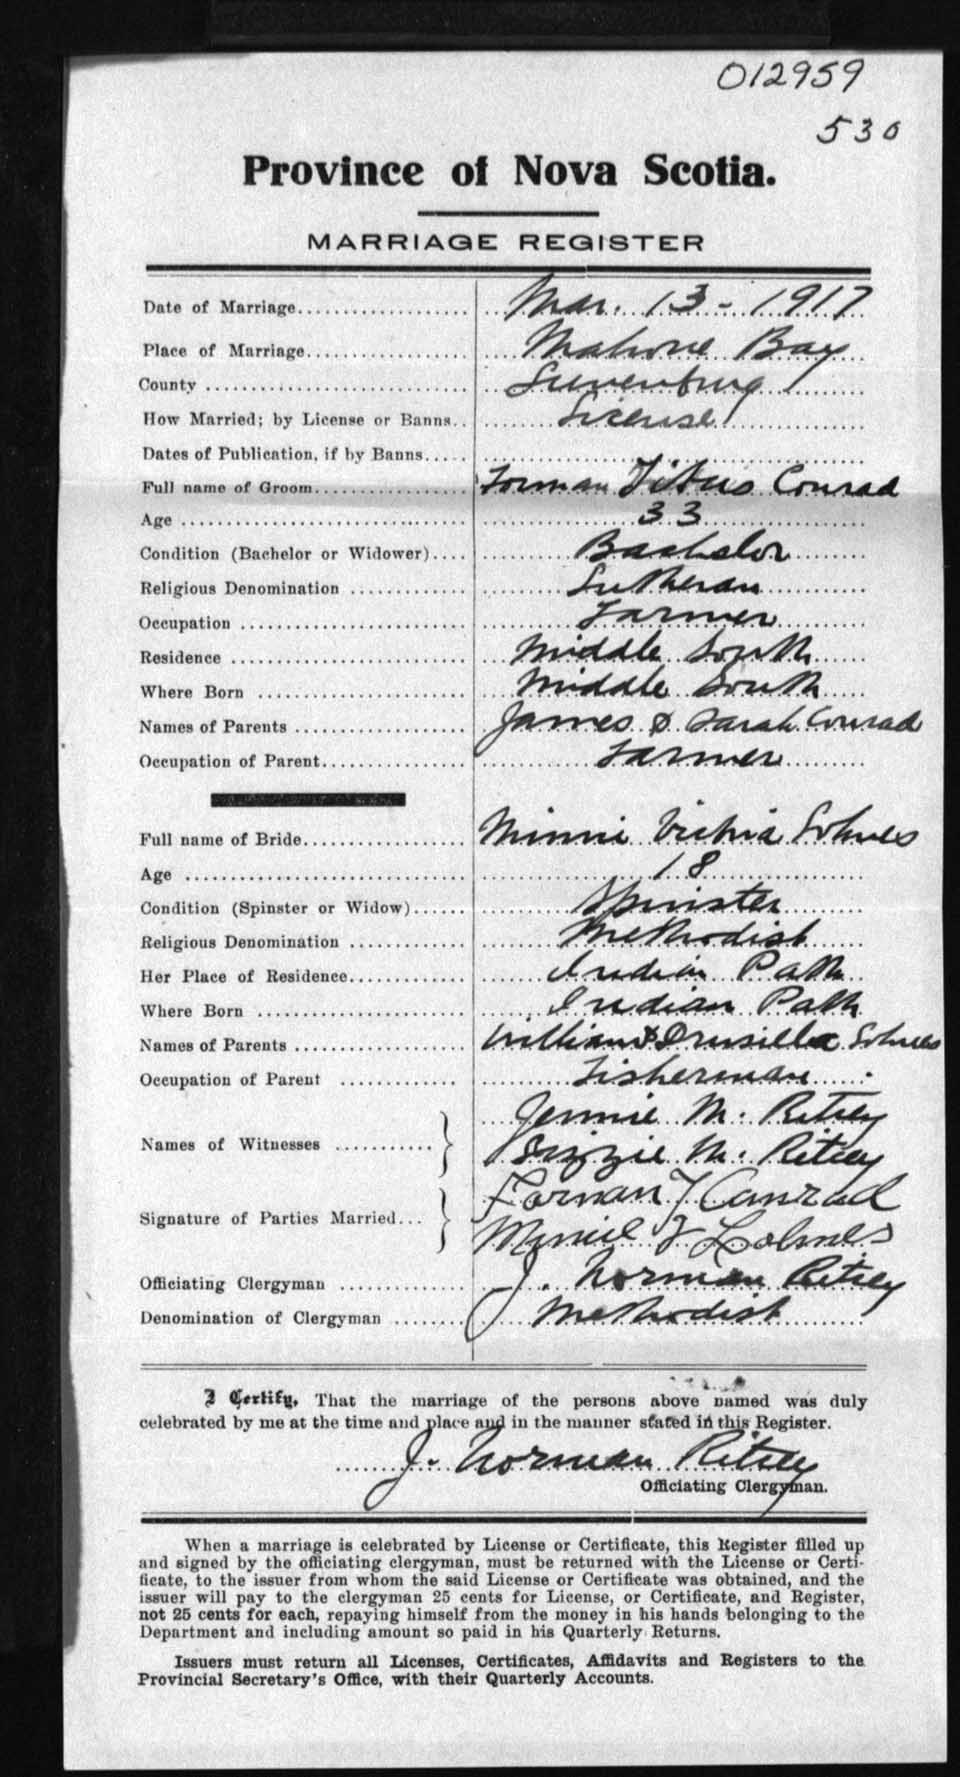 012959
530
Province of Nova Scotia.
MARRIAGE REGISTER
Date of Marriage Mar. 13 - 1917
Place of Marriage Mahone Bay
County Lunenburg
How Married; by License or Banns License
Dates of Publication, if by Banns
Full name of Groom Forman Titus Conrad
Age 33
Condition (Bachelor or Widower) Bachelor
Religious Denomination Lutheran
Occupation Farmer
Residence Middle South
Where Born Middle South
Names of Parents James & Sarah Conrad
Occupation of Parent Farmer
Full name of Bride Minnie Sohnes
Age 18
Condition (Spinster or Widow) Spinster
Religious Denomination Methodist
Her Place of Residence Indian Path
Where Born Indian Path
Names of Parents William & Drusilla Sohnes
Occupation of Parent Fisherman
Jennie M. Ritcey
Names of Witnesses
Lizzie M. Ritcey
Forman T Conrad
Signature of Parties Married
Minnie
Officiating Clergyman J. Norman Ritcey
Denomination of Clergyman Methodist
I Certify, That the marriage of the persons above named was duly
celebrated by me at the time and place and in the manner stated in this Register.
J. Norman Ritcey
Officiating Clergyman.
When a marriage is celebrated by License or Certificate, this Register filled up
and signed by the officiating clergyman, must be returned with the License or Certi-
ficate, to the issuer from whom the said License or Certificate was obtained, and the
issuer will pay to the clergyman 25 cents for License, or Certificate, and Register,
not 25 cents for each, repaying himself from the money in his hands belonging to the
Department and including amount so paid in his Quarterly Returns.
Issuers must return all Licenses, Certificates, Affidavits and Registers to the
Provincial Secretary's Office, with their Quarterly Accounts.